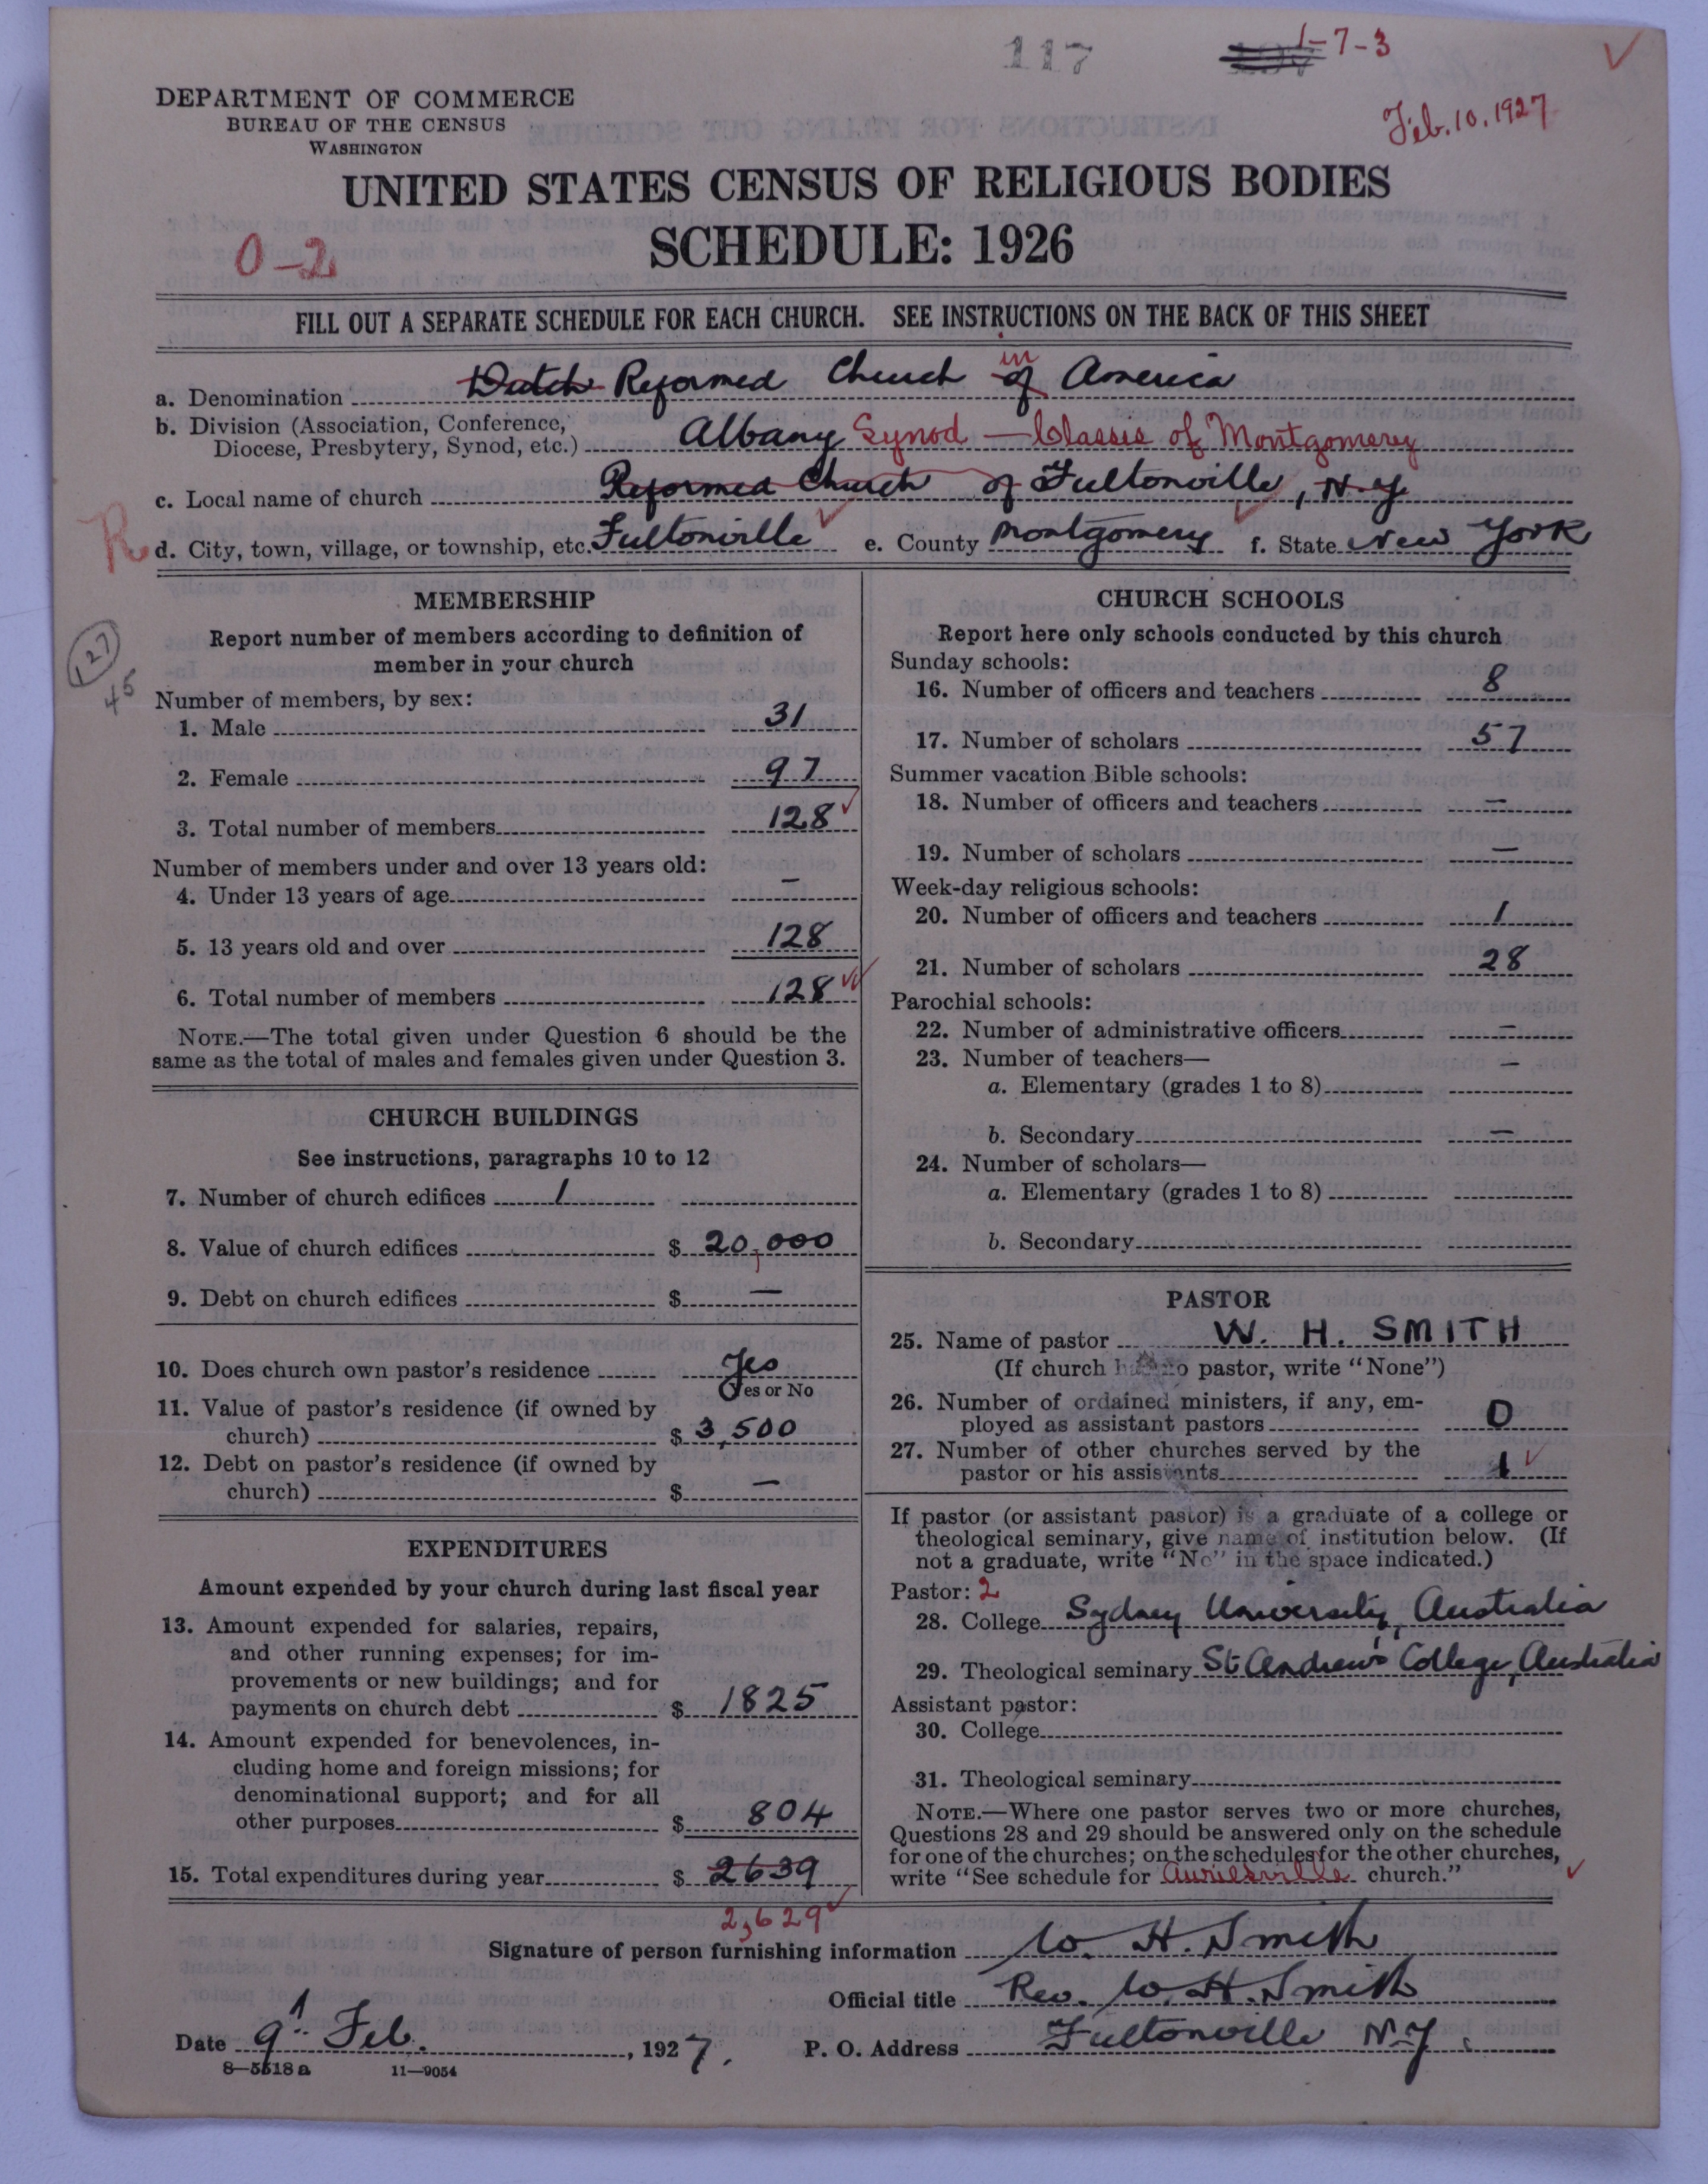 117 1-7-3
Feb. 10, 1927
DEPARTMENT OF COMMERCE
BUREAU OF THE CENSUS
WASHINGTON
UNITED STATES CENSUS OF RELIGIOUS BODIES
SCHEDULE: 1926
0-2
FILL OUT A SEPARATE SCHEDULE FOR EACH CHURCH. SEE INSTRUCTIONS ON THE BACK OF THIS SHEET
a. Denomination Dutch Reformed Church of in America
b. Division (Association, Conference,
Diocese, Presbytery, Synod, etc.) Albany Synod — Classis of Montgomery
c. Local name of church Reformed Church of Fultonville, N.Y.
R d. City, town, village, or township, etc. Fultonville e. County Montgomery f. State New York
MEMBERSHIP
Report number of members according to definition of
member in your church
127
45
Number of members, by sex:
1. Male 31
2. Female 97
3. Total number of members 128
Number of members under and over 13 years old:
4. Under 13 years of age —
5. 13 years old and over 128
6. Total number of members 128
NOTE.—The total given under Question 6 should be the
same as the total of males and females given under Question 3.
CHURCH BUILDINGS
See instructions, paragraphs 10 to 12
7. Number of church edifices 1
8. Value of church edifices $ 20,000
9. Debt on church edifices $ —
10. Does church own pastor's residence Yes
Yes or No
11. Value of pastor's residence (if owned by
church) $ 3,500
12. Debt on pastor's residence (if owned by
church) $ —
EXPENDITURES
Amount expended by your church during last fiscal year
13. Amount expended for salaries, repairs,
and other running expenses; for im-
provements or new buildings; and for
payments on church debt $ 1825
14. Amount expended for benevolences, in-
cluding home and foreign missions; for
denominational support; and for all
other purposes $ 804
15. Total expenditures during year $ 2639
2,629
CHURCH SCHOOLS
Report here only schools conducted by this church
Sunday schools:
16. Number of officers and teachers 8
17. Number of scholars 57
Summer vacation Bible schools:
18. Number of officers and teachers —
19. Number of scholars —
Week-day religious schools:
20. Number of officers and teachers 1
21. Number of scholars 28
Parochial schools:
22. Number of administrative officers —
23. Number of teachers— —
a. Elementary (grades 1 to 8)
b. Secondary —
24. Number of scholars—
a. Elementary (grades 1 to 8)
b. Secondary
PASTOR
25. Name of pastor W. H. SMITH
(If church has no pastor, write "None")
26. Number of ordained ministers, if any, em-
ployed as assistant pastors 0
27. Number of other churches served by the
pastor or his assistants 1
If pastor (or assistant pastor) is a graduate of a college or
theological seminary, give name of institution below. (If
not a graduate, write "No" in the space indicated.)
Pastor: 2
28. College Sydney University, Australia
29. Theological seminary St Andrew's College, Australia
Assistant pastor:
30. College
31. Theological seminary
NOTE.—Where one pastor serves two or more churches,
Questions 28 and 29 should be answered only on the schedule
for one of the churches; on the schedules for the other churches,
write "See schedule for Auriesville church."
Signature of person furnishing information W. H. Smith
Official title Rev. W. H. Smith
Date 9th Feb., 1927. P. O. Address Fultonville N.Y.
8—5518 a 11—9054